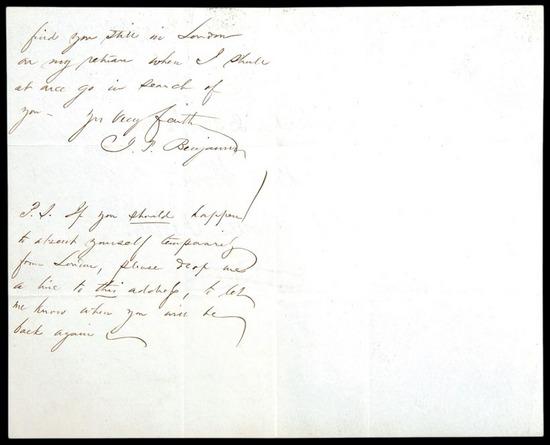 find you still in London
on my return when I shall
at once go in search of
you – Yrs very faith
J. P. Benjamin
P.S. If you should happen
to absent yourself temporarily
from London, please drop me
a line to this address, to let
me know when you will be
back again